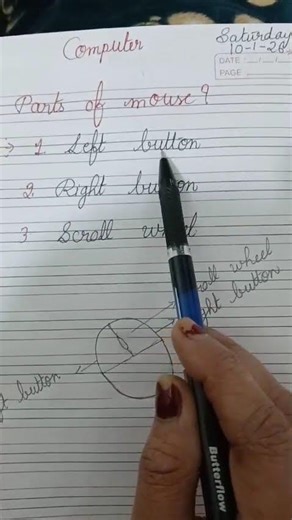 Computer
Saturday
10-1-26
DATE : / /
PAGE
Parts of mouse?
→ 1. Left button
2. Right button
3. Scroll wheel
wheel
button
button
Butterflow